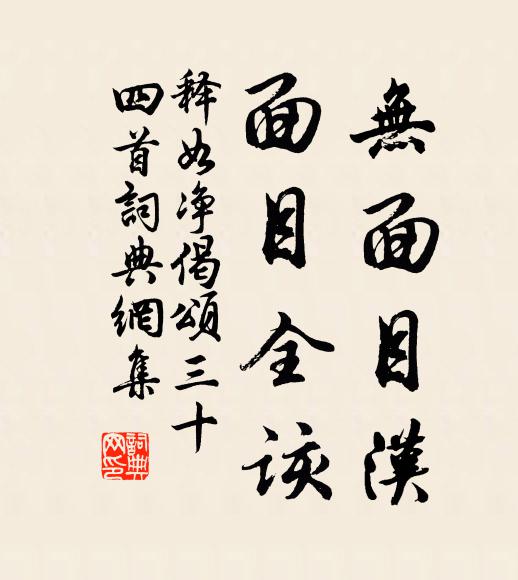 無面目漢
面目全該
釋如净偈頌三十
四首詞典網集
詞典網印